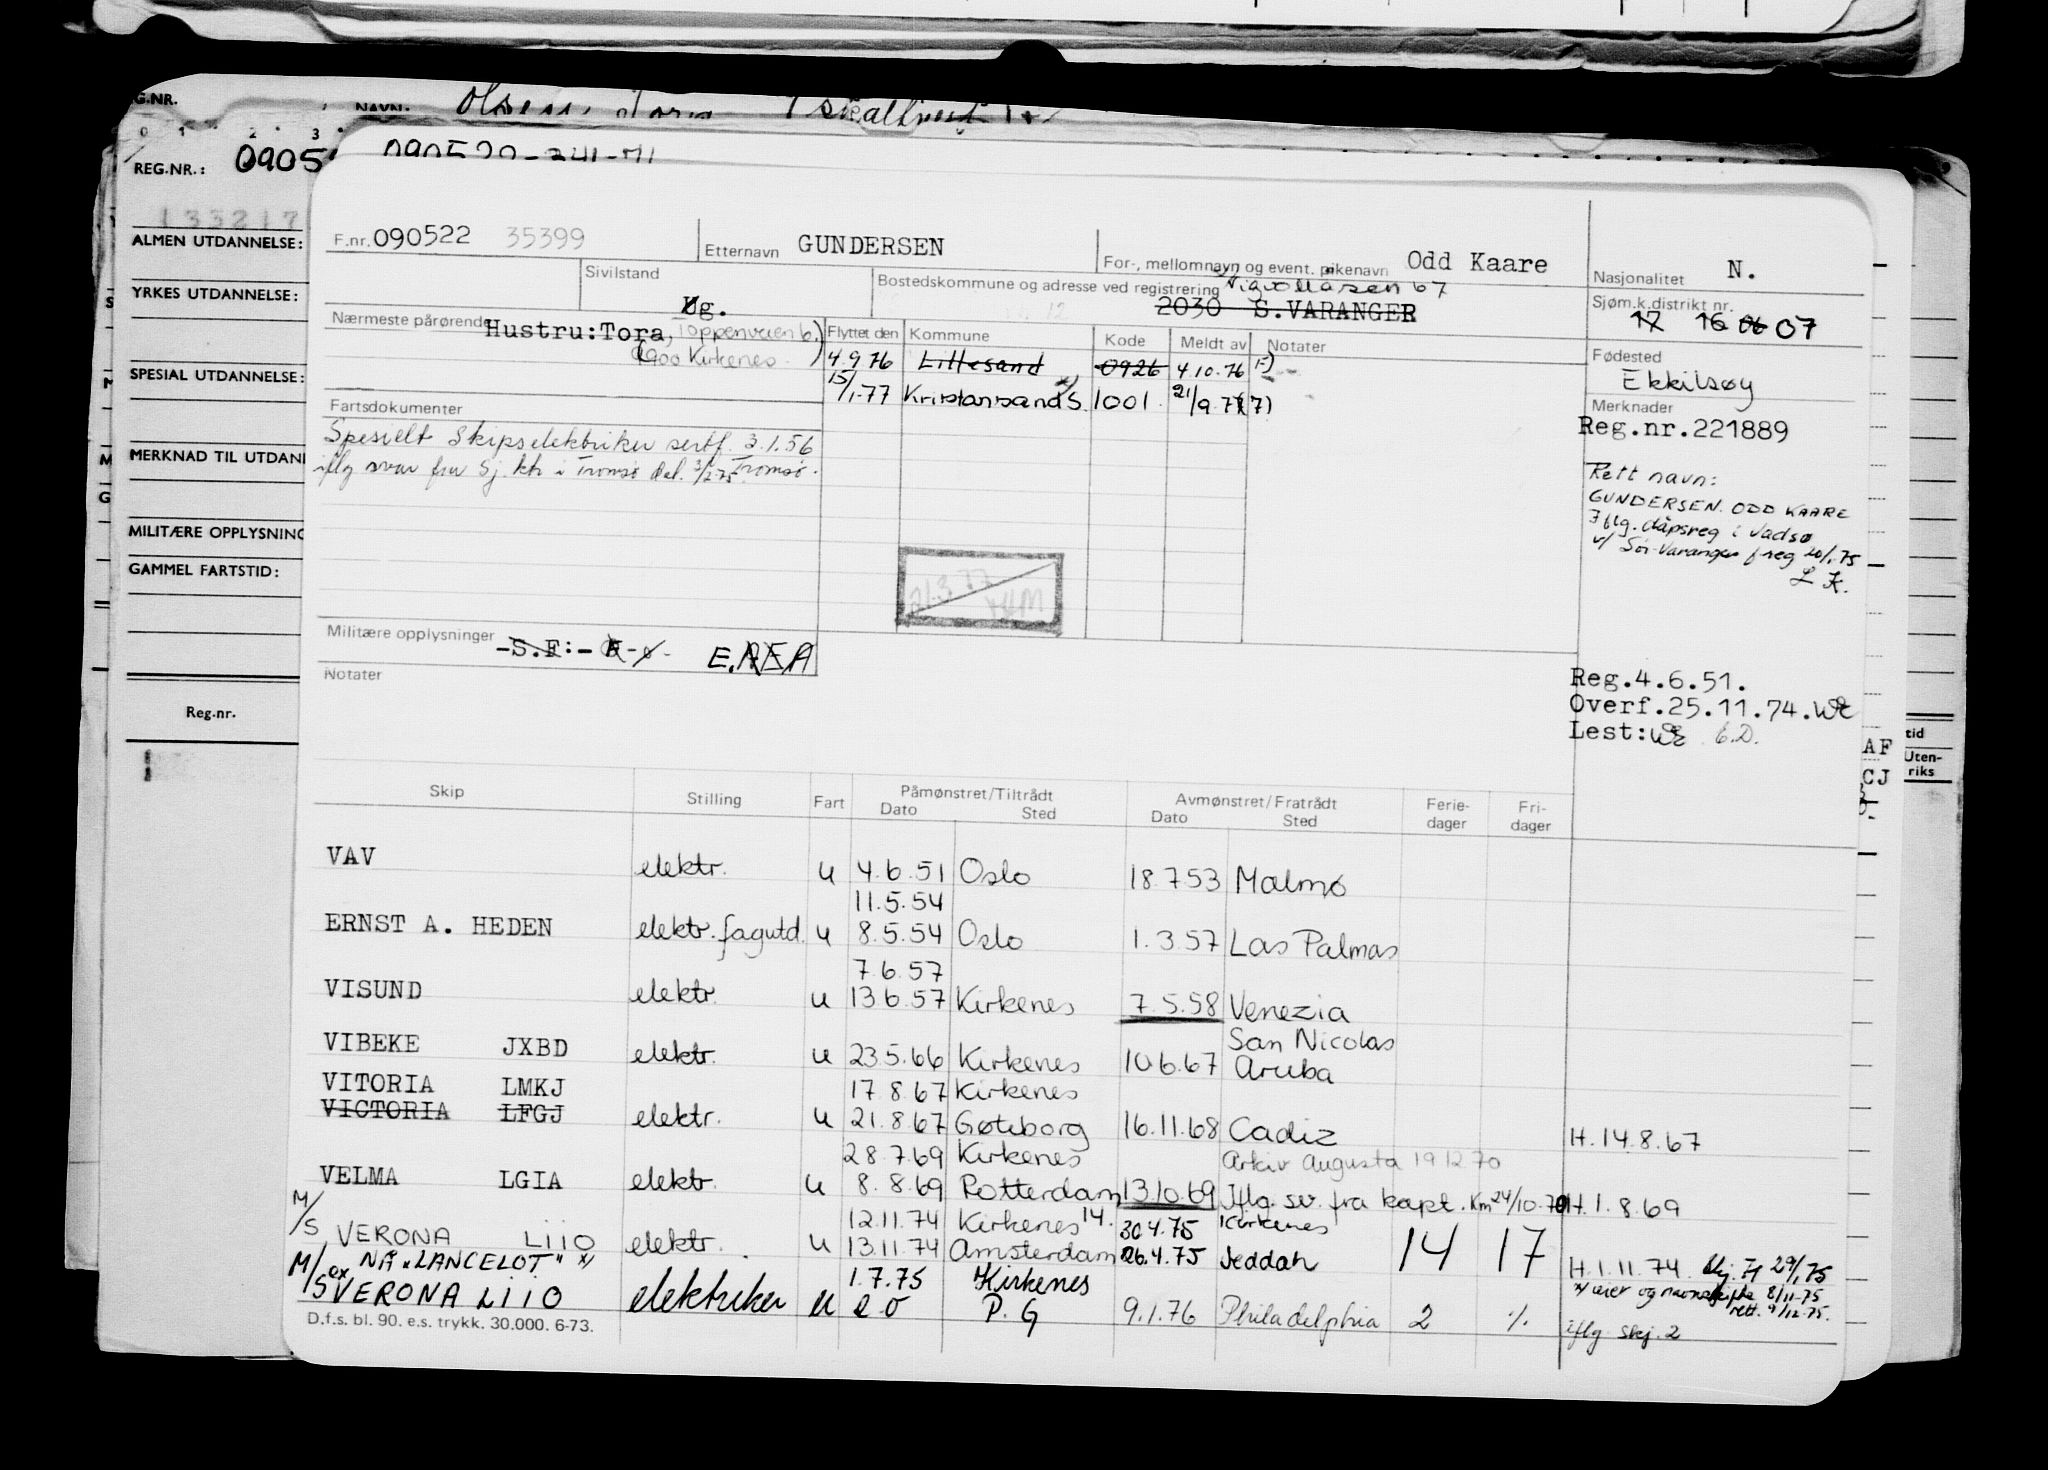 G.NR. NAVN: Olsen,
0 1 2 3
REG.NR.: 0905 090520-241-71
133217
ALMEN UTDANNELSE:
YRKES UTDANNELSE:
SPESIAL UTDANNELSE:
MERKNAD TIL UTDAN
MILITÆRE OPPLYSNING
GAMMEL FARTSTID:
Reg.nr.
F.nr. 090522 35399 Etternavn GUNDERSEN For-, mellomnavn og event. pikenavn Odd Kaare Nasjonalitet N.
Sivilstand Ug. Bostedskommune og adresse ved registrering 67
2030 S.VARANGER
Sjøm.k.distrikt nr. 17 16 06 07
Nærmeste pårørende Hustru:Tora, Toppenveien 6.)
(9900 Kirkenes )
Flyttet den Kommune Kode Meldt av Notater
4.9.76 Lillesand 0926 4.10.76
15/1-77 Kristiansand S. 1001 21/9.77
Fødested
Ekkilsøy
Merknader
Reg.nr.221889
Fartsdokumenter
Spesielt Skipselektriker sertf. 3.1.56
iflg svar fra Sj. ktr i Tromsø dat. 3/2-75. Tromsø.
Rett navn:
GUNDERSEN. ODD KAARE
Iflg. dåpsreg i Vadsø
v/ Sør-Varanger f reg 20/1.75
L K.
21.3.77
HM
Militære opplysninger -S.F:-
Notater
Reg.4.6.51.
Overf.25.11.74.WE
Lest:WE E.D.
Skip Stilling Fart Påmønstret/Tiltrådt Avmønstret/Fratrådt Ferie- Fri-
Dato Sted Dato Sted dager dager
tid
Uten-
riks
AF
CJ
VAV elektr. u 4.6.51 Oslo 18.7.53 Malmø
11.5.54
ERNST A. HEDEN elektr. fagutd. u 8.5.54 Oslo 1.3.57 Las Palmas
7.6.57
VISUND elektr. u 13.6.57 Kirkenes 7.5.58 Venezia
San Nicolas
VIBEKE JXBD elektr. u 23.5.66 Kirkenes 10.6.67 Aruba
VITORIA LMKJ 17.8.67 Kirkenes
VICTORIA LFGJ elektr. u 21.8.67 Gøteborg 16.11.68 Cadiz H.14.8.67
28.7.69 Kirkenes Arkiv Augusta 19.12.70
VELMA LGIA elektr. u 8.8.69 Rotterdam 13.10.69 Iflg. sv. fra kapt. Km 24/10.70 H.1.8.69
12.11.74 Kirkenes 14. 30.4.75 Kirkenes
M/S VERONA LIIO elektr. u 13.11.74 Amsterdam 26.4.75 Jeddah 14 17 H.1.11.74 29/1,75
ex NÅ "LANCELOT" x) 1.7.75 Kirkenes
x) eier og navneskifte 8/11-75
rett. 9/12-75.
M/S VERONA LIIO elektriker u e o P. G 9.1.76 Philadelphia 2 % iflg skj. 2
D.f.s. bl. 90. e.s. trykk. 30.000. 6-73.